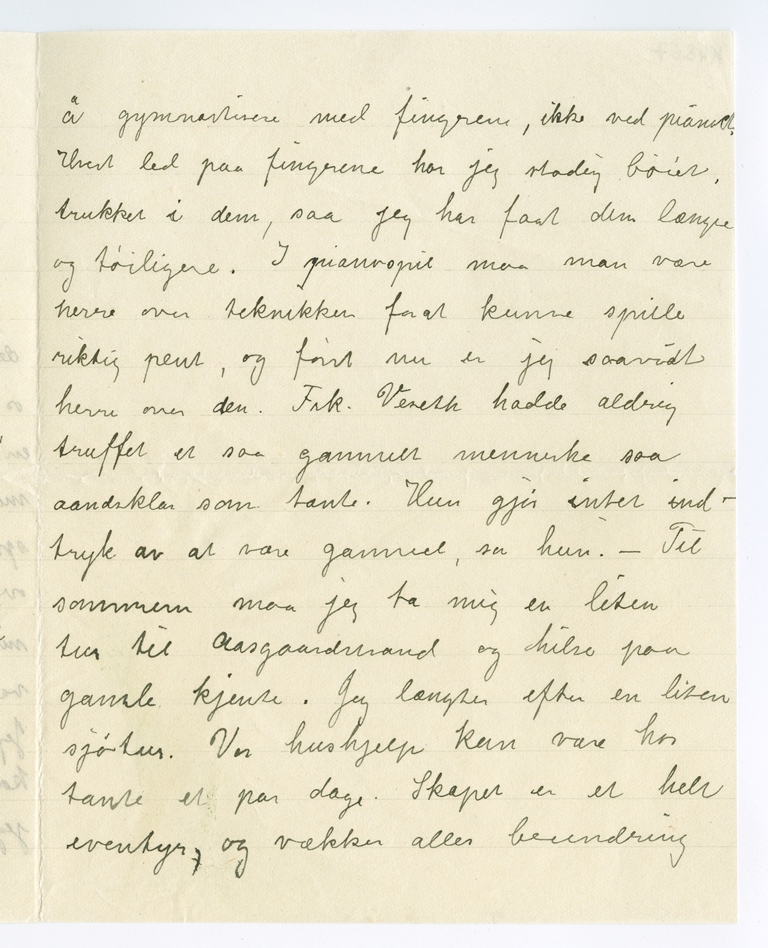 å gymnastisere med fingrene, ikke ved pianoet.
Hvert led paa fingrene har jeg stadig bøiet,
trukket i dem, saa jeg har faat dem længre
og tøiligere. I pianospil maa man være
herre over teknikken forat kunne spille
riktig pent, og først nu er jeg saavidt
herre over den. Frk. Vereth hadde aldrig
truffet et saa gammelt menneske saa
aandsklar som tante. Hun gjør intet ind-
tryk av at være gammel, sa hun. — Til
sommeren maa jeg ta mig en liten
tur til Aasgaardstrand og hilse paa
gamle kjente. Jeg længter efter en liten
sjøtur. Vor hushjelp kan være hos
tante et par dage. Skapet er et helt
eventyr, og vækker alles beundring